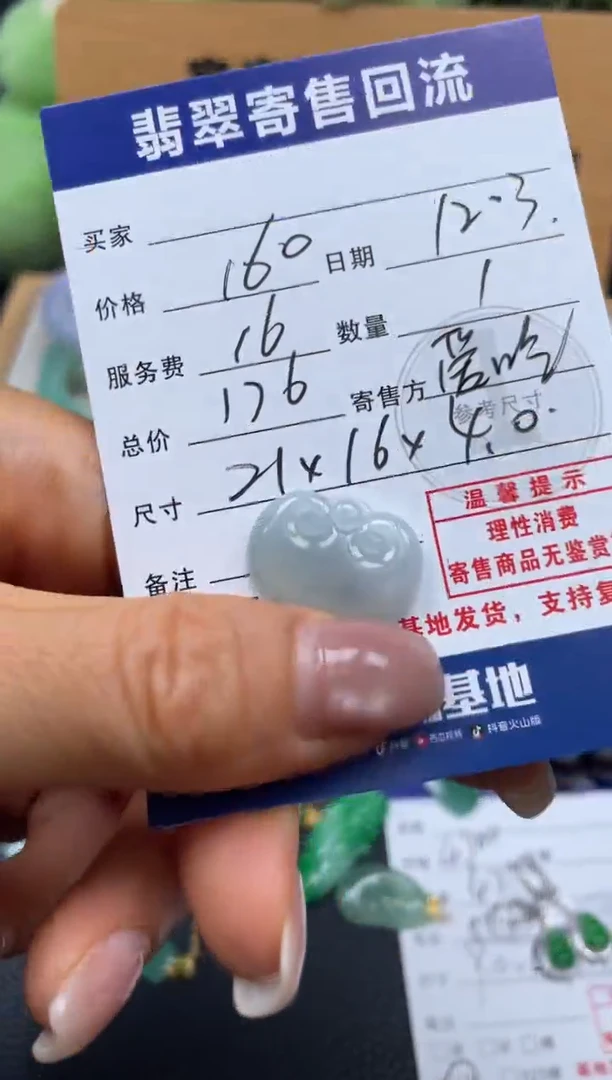 翡翠寄售回流
买家
价格 160 日期 12.3.
服务费 16 数量 1
总价 176 寄售方
参考尺寸
尺寸 21x16x4.0.
备注
温馨提示
理性消费
寄售商品无鉴赏
基地发货，支持复
基地
抖音火山版